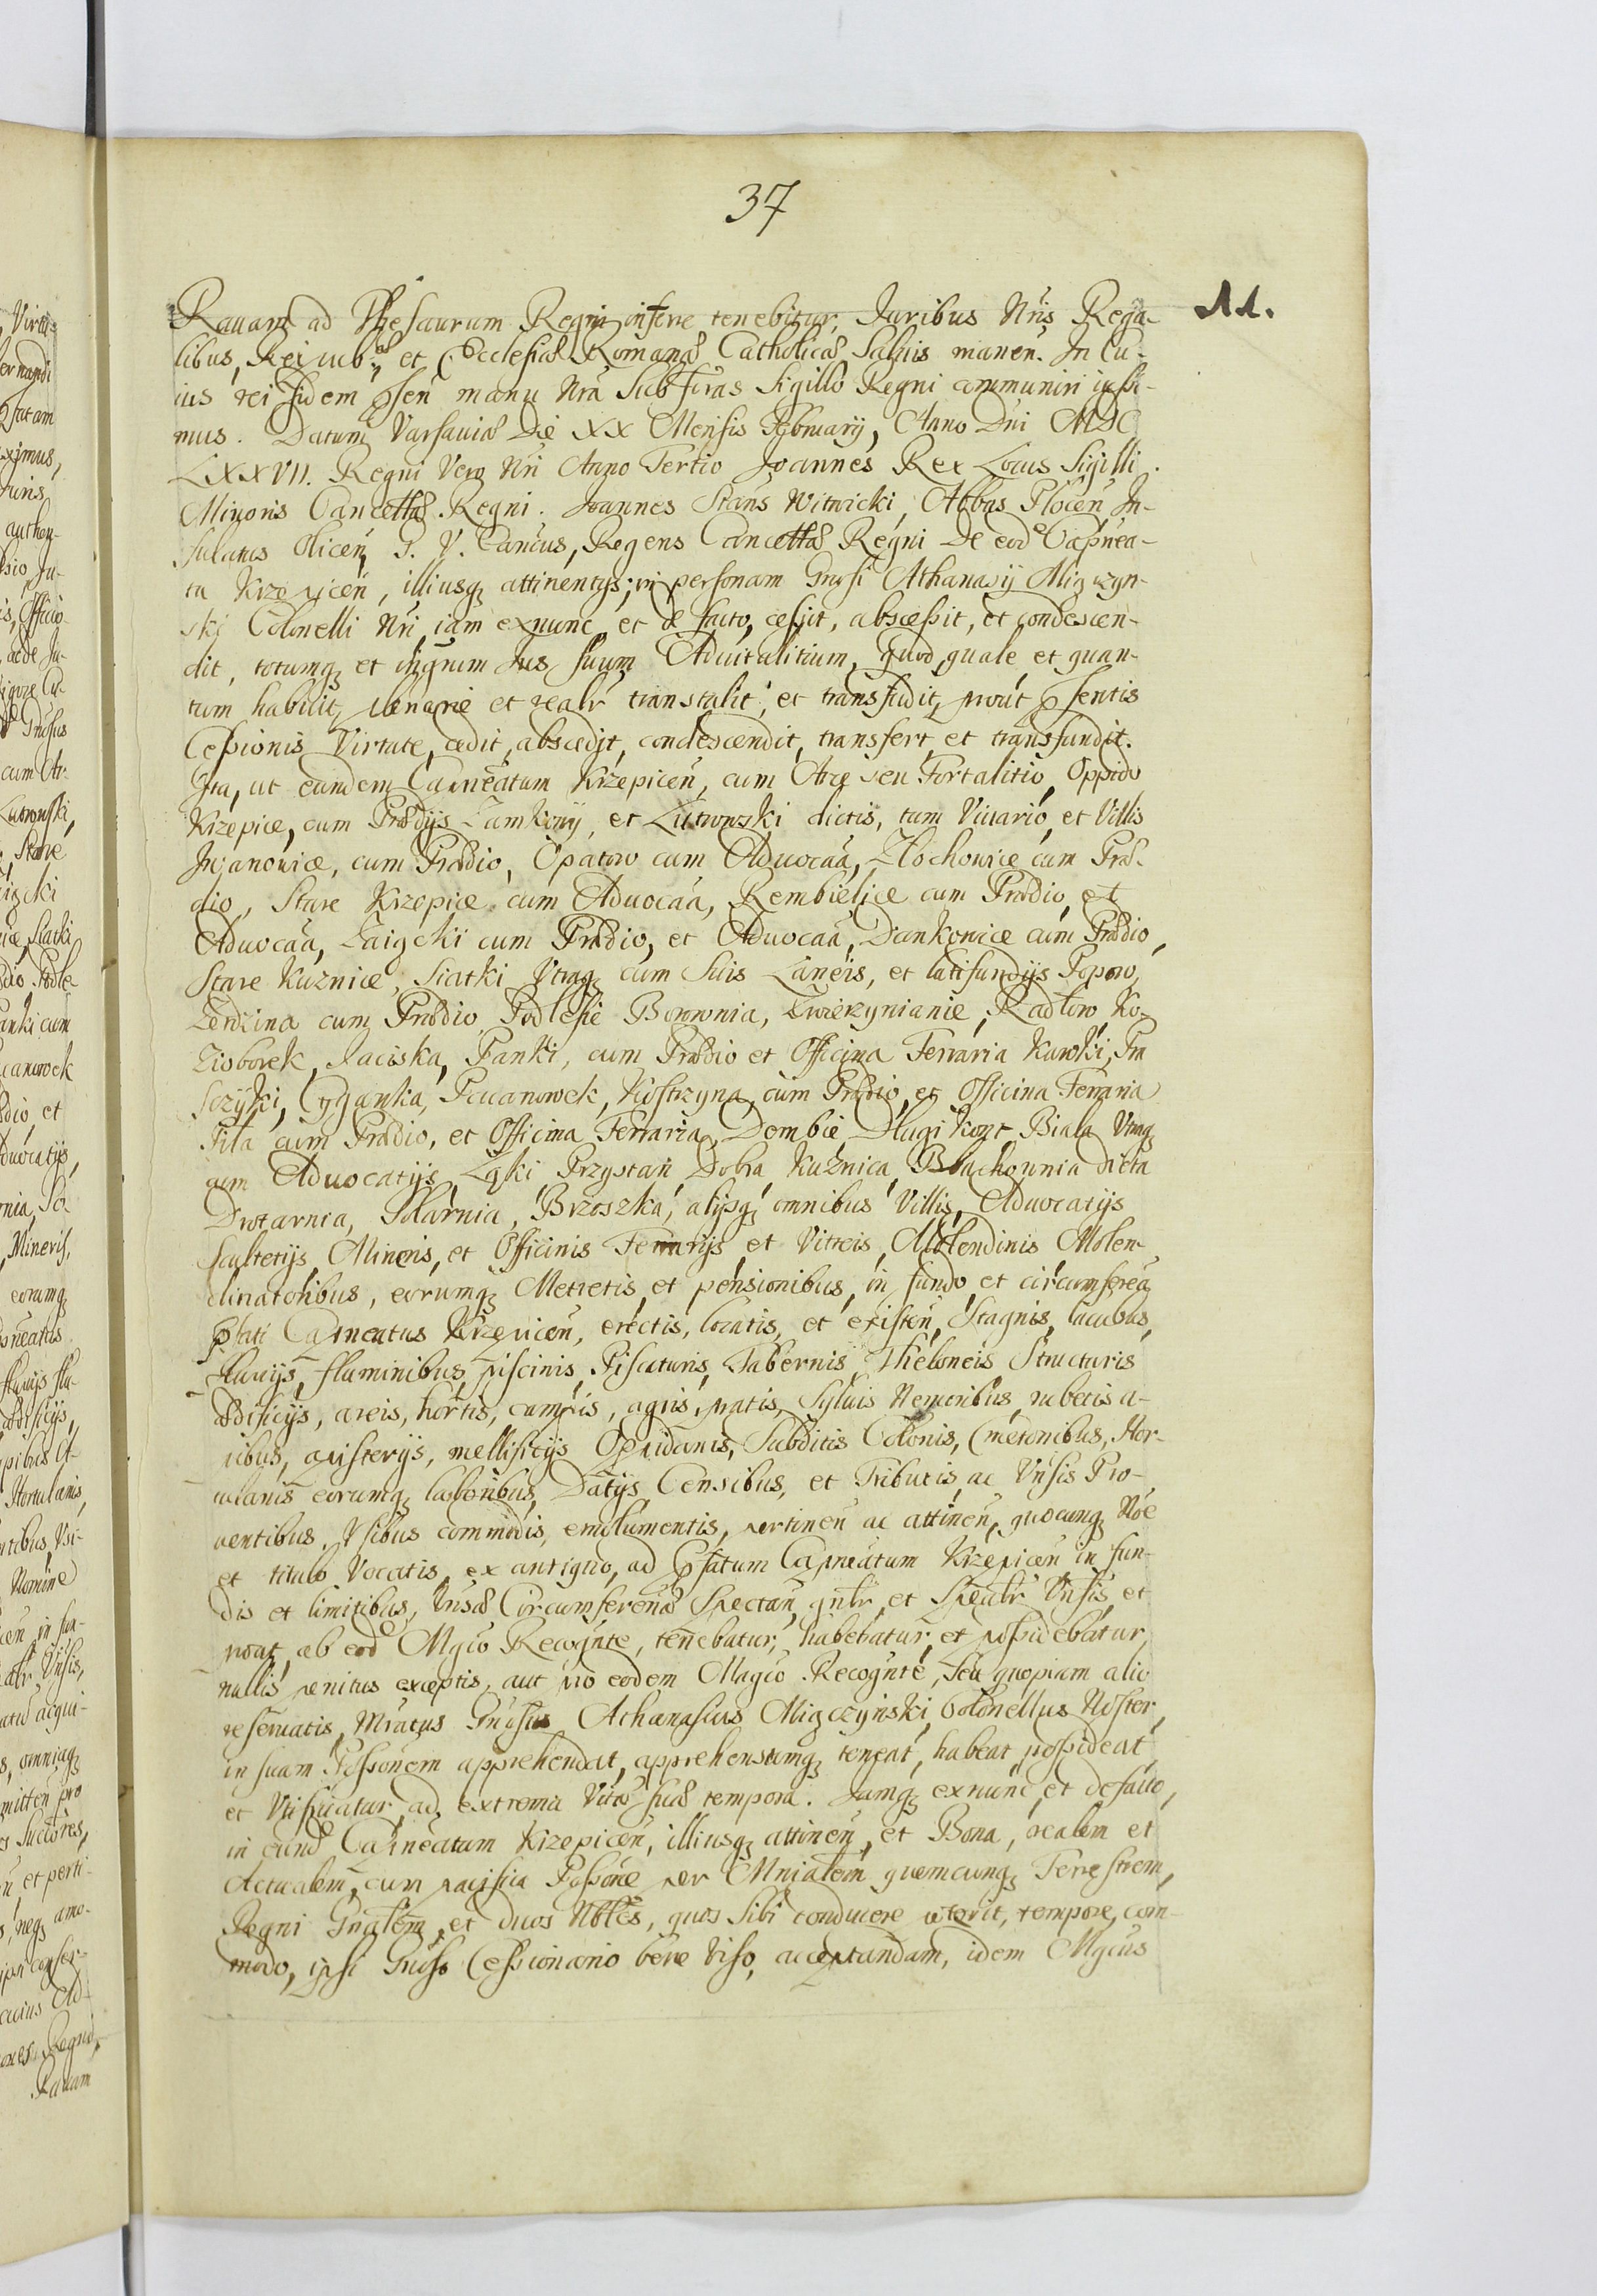 37
11.
Rauam ad Thesaurum Regni inferre tenebitur, Iuribus Nris Rega-
libus, Reipub: et Ecclesiæ Romanæ Catholicæ Saluis manen. In Cu-
ius rei fidem psen manu Nra Subscras Sigillo Regni communiri iussi-
mus. Datum Varsauiæ Die XX Mensis Februarij, Anno Dni MDC
LXXVII. Regni Vero Nri Anno Tertio Joannes Rex Locus Sigilli
Minoris Cancellæ Regni. Joannes Stans Witwicki, Abbas Plocen In-
fulatus P. V. Cancus, Regens Cancellæ Regni De eod Capnea-
tu Krzepicen, illiusq attinentijs; in personam Gnosi Athanasij Miączyn-
skj Colonelli Nri iam exnunc, et de facto, cessit, abscessit, et condescen-
dit, totumq et integrum Ius suum Aduitalitium, quod, quale, et quan-
tum habuit, plenarie et realr transtulit, et transfudit, prout psentis
Cessionis Virtute, cedit, abscedit, condescendit, transfert, et transfundit.
Ita, ut eundem Capneatum Krzepicen, cum Arce seu Fortalitio, Oppido
Krzepice, cum Prædijs Zamkowy, et Lutrowski dictis, tum Viuario, et Villis
Iwanowice, cum Prædio, Opatow cum Aduocaa, Złochowice cum Præ-
dio, Stare Krzepice cum Aduocaa, Rembielice cum Prædio, et
Aduocaa, Zaiączki cum Prædio, et Aduocaa, Dankowice cum Prædio,
Stare Kuznice, Siatki Utraq cum Suis Laneis, et latifundijs Popow,
Zerdzina cum Prædio Podlesie Borownia, Zwierzynianie, Radłow Ko-
ziborek, Jaciska, Panki, cum Prædio et Officina Ferraria Kawki, Pra
szczyki, Cyganka, Pacanowek, Kostrzyna, cum Prædio, et Officina Ferraria
Piła cum Prædio, et Officina Ferraria, Dombie, Długi Kąt, Biała Utraq
cum Aduocatijs Łąki Przystań, Dobra Kuźnica, Blachownia dicta
Drotarnia, Solarnia, Brzoszka, alijsq omnibus Villis, Aduocatijs
Scultetijs, Mineris, et Officinis Ferrarijs et Vitreis, Molendinis Molen-
dinatoribus, eorumq Metretis et pensionibus, in fundo, et circumferea
pfati Capneatus Krzepicen, erectis, locatis, et existen, Stagnis, lacubus,
fluuijs, fluminibus, piscinis, Piscaturis, Tabernis Theloneis Structuris
ædificijs, areis, hortis, campis, agris, pratis, Syluis Nemoribus, rubetis a-
pibus, apisterijs, mellificijs Oppidanis, Subditis Colonis, Cmetonibus, Hor-
tulanis eorumq laboribus, Datijs Censibus, et Tributis, ac Vnsis Pro-
uentibus, Vsibus commodis, emolumentis, pertinen ac attinen, quocunq Noe
et titulo Vocatis, ex antiquo, ad pfatum Capneatum Krzepicen in fun-
dis et limitibus, Vnsæ Circumferenæ Spectan, gnlr, et Specalr Vnsis, et
prout, ab eod Mgco Recognte, tenebatur, habebatur, et possidebatur,
nullis penitus exceptis, aut pro eodem Magco Recognte, Seu quopiam alio
reseruatis, Mratus Gnosus Athanasius Miączyński, Colonellus Noster,
in suam Possonem apprehendat, apprehensumq teneat, habeat possideat
et Vtifruatur, ad extrema Vitæ Suæ tempora. Iamq exnunc et defacto,
in eund Capneatum Krzepicen, illiusq attinen, et Bona, realem et
Actualem, cum pacifica Possone per Mnialem quemcunq Terrestrem,
Regni Gnalem, et duos Nbles, quos Sibi conducere tempore com-
modo, ipsi Gnoso Cessionario bene Viso, acceptandam, idem Mgcus